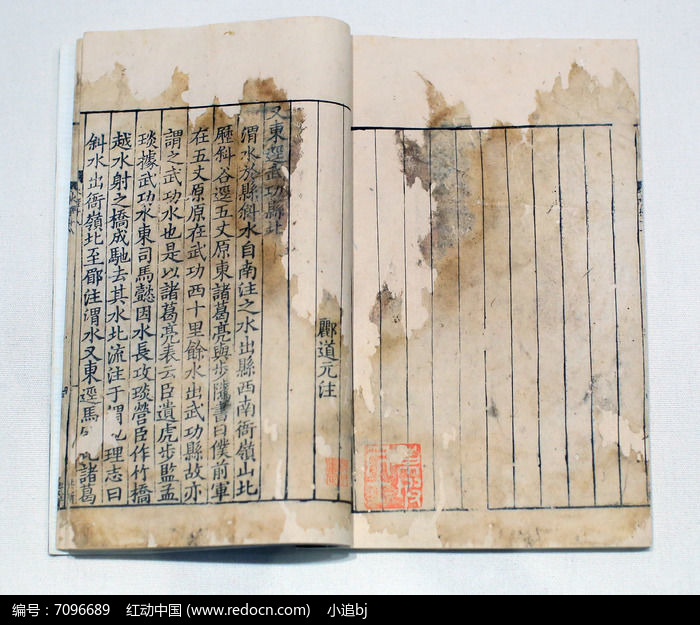 酈道元注
又東逕武功縣北
渭水於縣斜水自南注之水出縣西南衙嶺山北
歷斜谷逕五丈原東諸葛亮與步隲書曰僕前軍
在五丈原原在武功西十里餘水出武功縣故亦
謂之武功水也是以諸葛亮表云臣遣虎步監孟
琰據武功水東司馬懿因水長攻琰營臣作竹橋
越水射之橋成馳去其水北流注于渭理志曰
斜水出衙嶺北至郿注渭水又東逕馬諸葛
编号：7096689 红动中国 (www.redocn.com) 小追bj